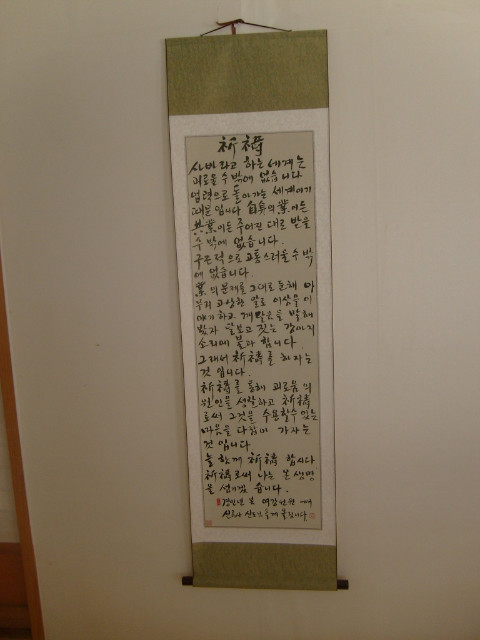 祈禱
사바라고 하는 세계는
괴로울 수 밖에 없습니다
업력으로 돌아가는 세계이기
때문입니다 自身의 業이든
共業이든 주어진 대로 받을
수 밖에 없습니다.
구조적으로 고통스러울 수 밖
에 없습니다.
業의 문제를 그대로 둔채 아
무리 고상한 말로 이상을 이
야기 하고, 깨달음을 말해
봤자 달보고 짖는 강아지
소리에 불과 합니다.
그래서 祈禱를 하자는
것 입니다.
祈禱를 통해 괴로움의
원인을 성찰하고 祈禱
로써 그것을 수용할 수 있는
마음을 다잡아 가자는
것 입니다
늘 함께 祈禱 합시다
祈禱로써 나는 온생명
을 섬기겠습니다.